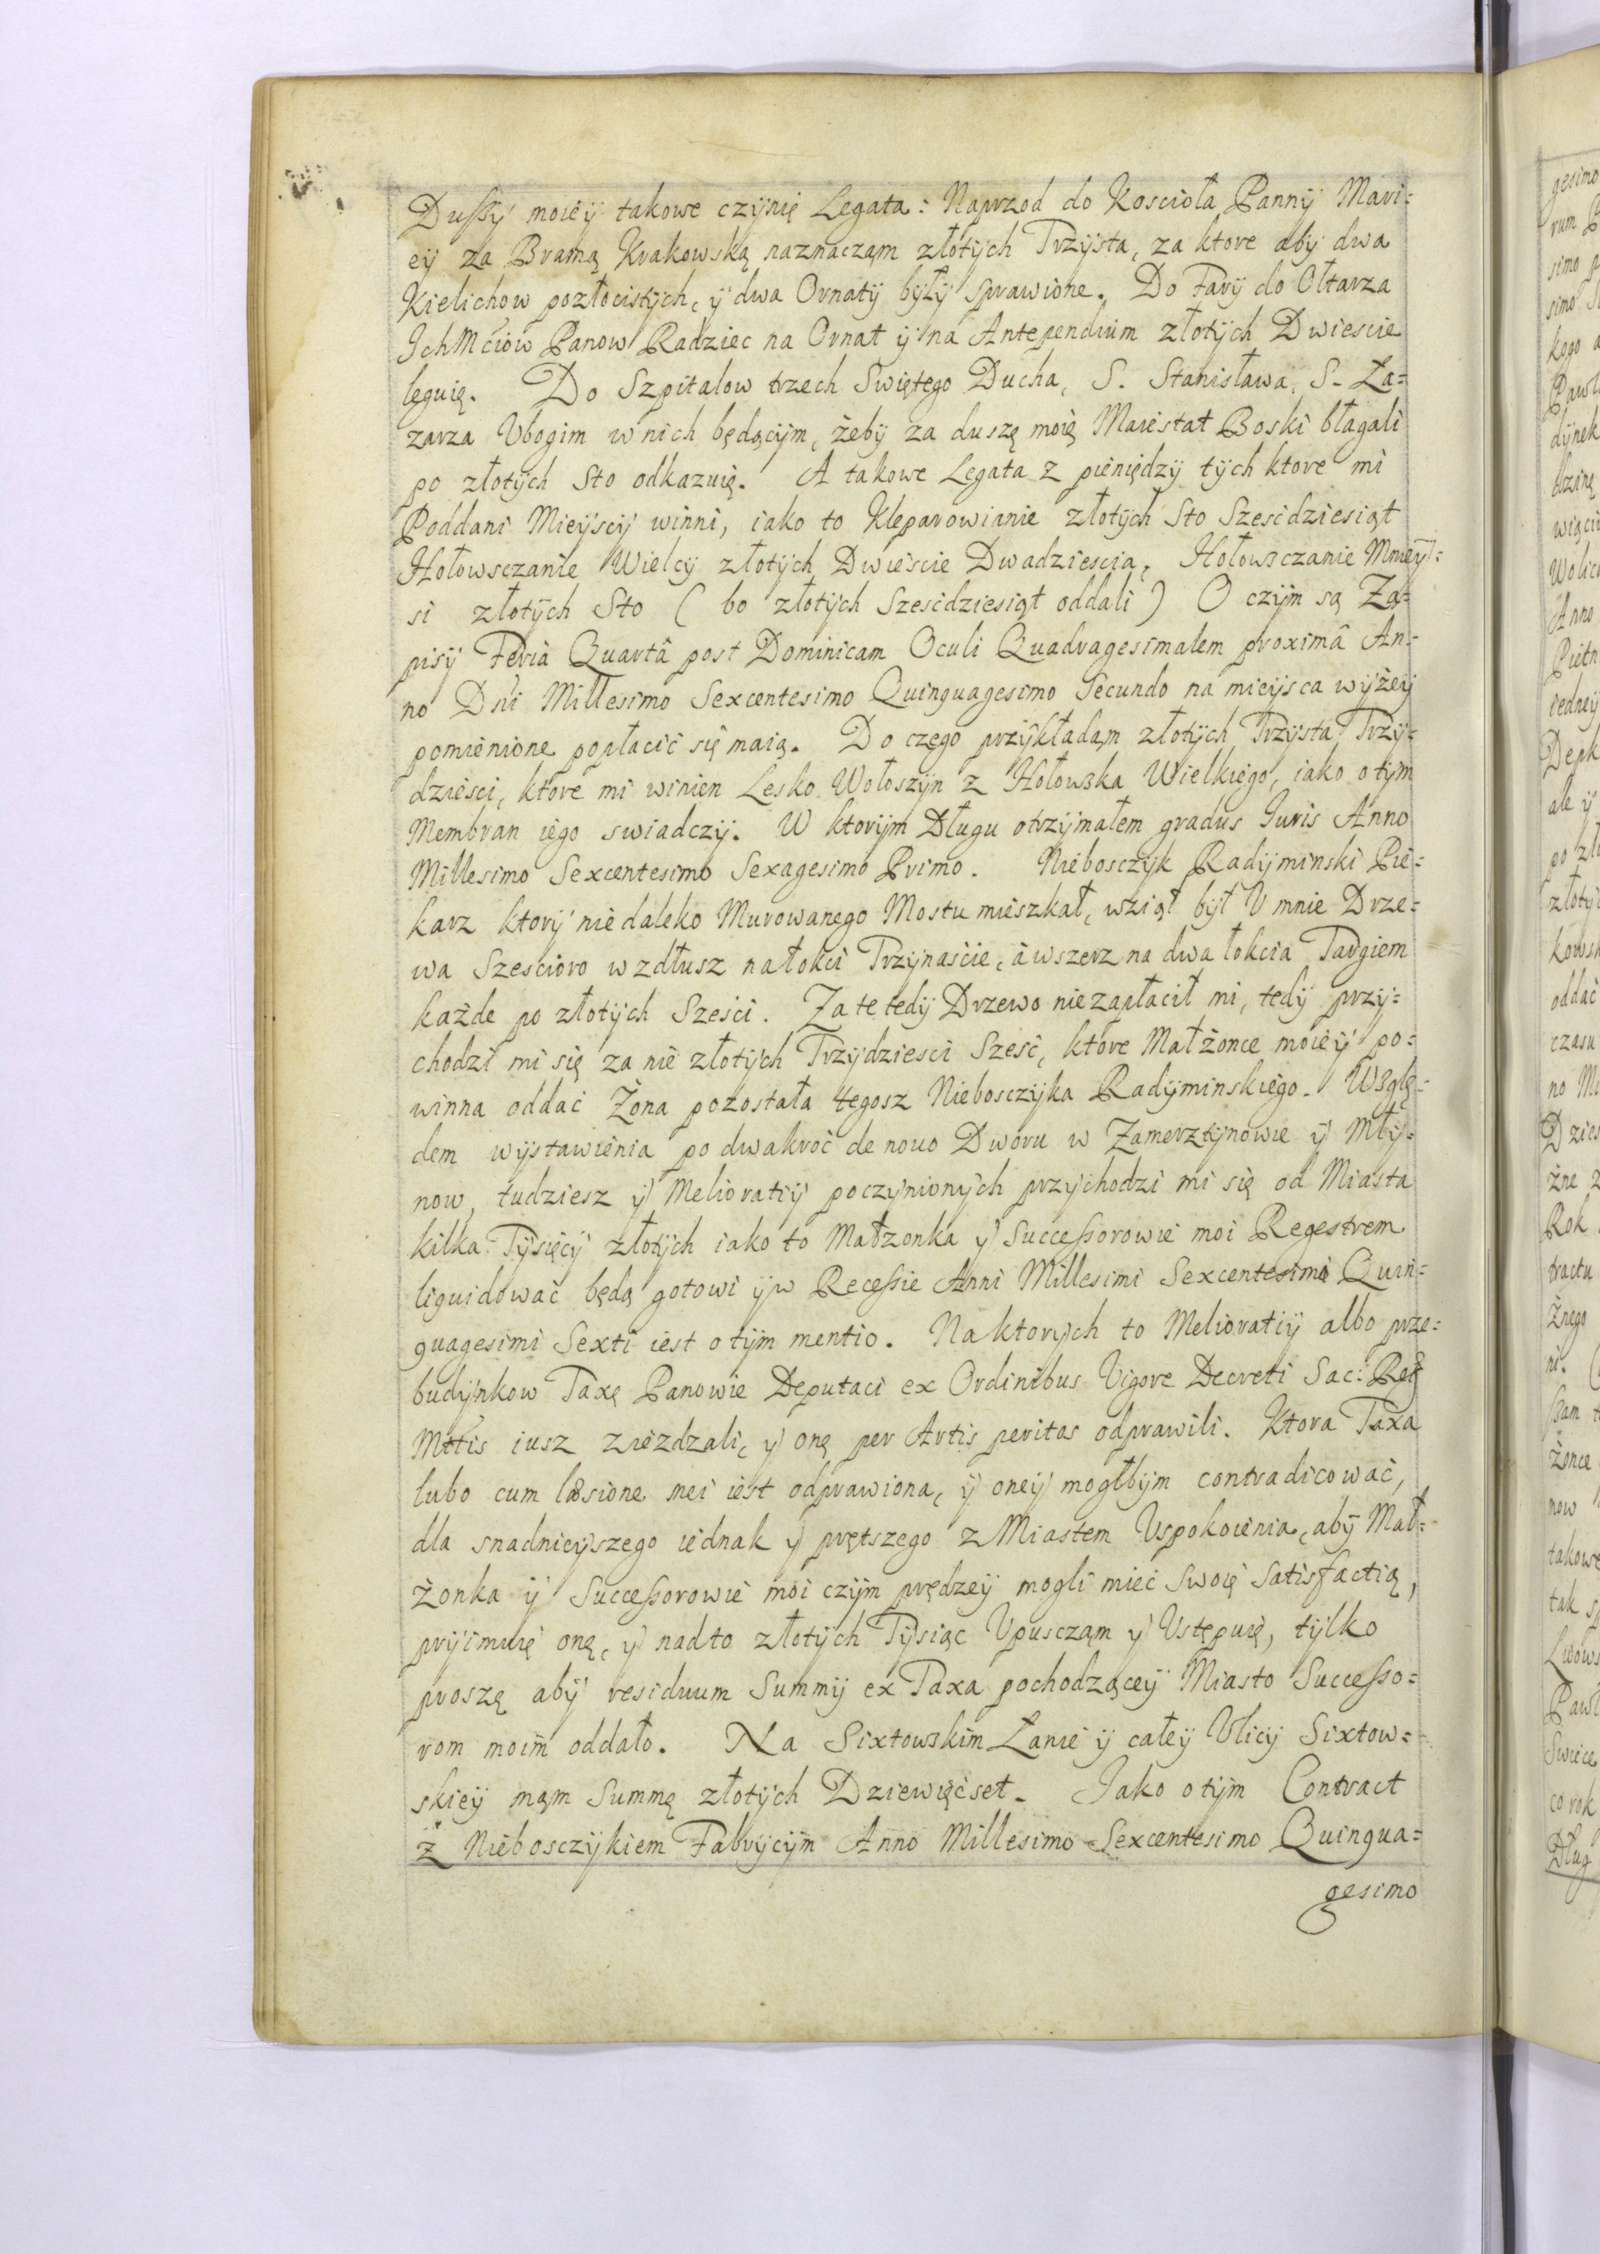 Dussy moiey takowe czynię Legata: Naprzod do Kościoła Panny Mari=
ey za Bramą Krakowską naznaczam złotych Trzysta, za ktore aby dwa
Kielichow pozłocistych, y dwa Ornaty były sprawione. Do Fary do Ołtarza
IchMciow Panow Radziec na Ornat y na Antependium złotych Dwiescie
leguię. Do Szpitalow trzech Swiętego Ducha, S. Stanisława, S. Ła=
zarza Vbogim w nich będącym, żeby za duszę moię Maiestat Boski błagali
po złotych sto odkazuię. A takowe Legata z pieniędzy tych ktore mi
Poddani Mieyscy winni, iako to Kleparowianie złotych Sto Sześcdziesiąt
Hołowsczanie Wielcy złotych Dwiescie Dwadziescia, Hołowsczanie Mniey=
si złotych Sto (bo złotych Sześcdziesiąt oddali) O czym są Za=
pisy Feria Quartâ post Dominicam Oculi Quadragesimalem proximâ An=
no Dni Millesimo Sexcentesimo Quinquagesimo Secundo na mieysca wyżey
pomienione popłacić się maią. Do czego przykładam złotych Trzysta Trzy=
dzieści, ktore mi winien Lesko Wołoszyn z Hołowska Wielkiego, iako o tym
Membran iego swiadczy. W ktorym Długu otrzymałem gradus Iuris Anno
Millesimo Sexcentesimo Sexagesimo Primo. Niebosczyk Radyminski Pie=
karz ktory nie daleko Murowanego Mostu mieszkał, wziął był V mnie Drze=
wa Szescioro wzdłusz na łokci Trzynaście, a wszerz na dwa łokcia Targiem
każde po złotych Sześci. Za te tedy Drzewo niezapłacił mi, tedy przy=
chodzi mi się za nie złotych Trzydziesci Sześć, ktore Małżonce moiey po=
winna oddać Żona pozostała tegosz Niebosczyka Radyminskiego. Wzglę=
dem wystawienia po dwakroć de nouo Dworu w Zamerztynowie y Mły=
now, tudziesz y Melioratiy poczynionych przychodzi mi się od Miasta
kilka Tysięcy złotych iako to Małzonka y Successorowie moi Regestrem
liquidować będą gotowi y w Recessie Anni Millesimi Sexcentesimi Quin=
quagesimi Sexti iest o tym mentio. Na ktorych to Melioratiy albo prze=
budynkow Taxę Panowie Deputaci ex Ordinibus Vigore Decreti Sac: Reg
Mttis iusz zieżdzali, y onę per Artis peritos odprawili. Ktora Taxa
lubo cum læsione mei iest odprawiona, y oney mogłbym contradicować,
dla snadnieyszego iednak y prętszego z Miastem Vspokoienia, aby Mał=
żonka y Successorowie moi czym prędzey mogli mieć swoię satisfactią,
przyimuię onę, y nadto złotych Tysiąc Vpusczam y Vstępuię, tylko
proszę aby residuum Summy ex Taxa pochodzącey Miasto Successo=
rom moim oddało. Na Sixtowskim Łanie y całey Vlicy Sixtow=
skiey mam Summę złotych Dziewięćset. Jako o tym Contract
z Niebosczykiem Fabrycym Anno Millesimo Sexcentesimo Quinqua=
gesimo